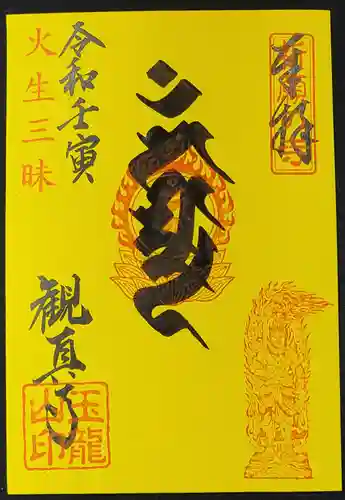 奉拝
令和壬寅
火生三昧
観真寺
玉龍
山印